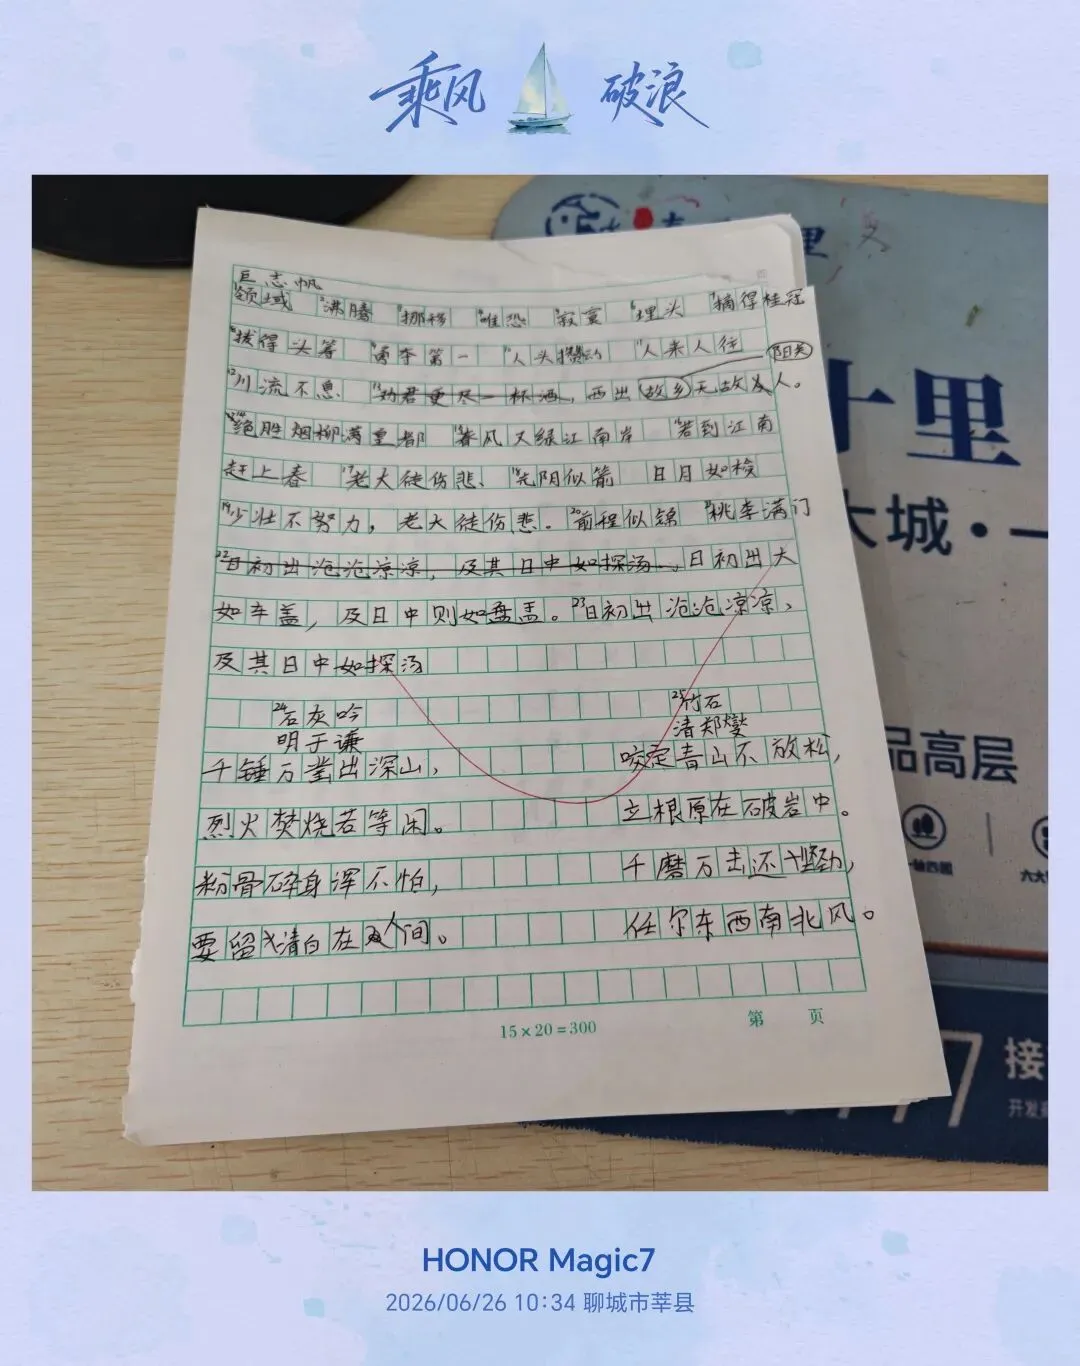 乘风 破浪
里
巨志帆
领域 沸腾 挪移 唯恐 寂寞 埋头 摘得桂冠
拔得头筹 勇夺第一 人头攒动 人来人往
阳关
川流不息 劝君更尽一杯酒，西出故乡无故人。
绝胜烟柳满皇都 春风又绿江南岸 若到江南
赶上春 老大徒伤悲、光阴似箭 日月如梭
19少壮不努力，老大徒伤悲。20前程似锦 桃李满门
22日初出沧沧凉凉，及其日中如探汤。，日初出大
如车盖，及日中则如盘盂。23日初出沧沧凉凉、
及其日中如探汤
24石灰吟
明于谦
千锤万凿出深山，
烈火焚烧若等闲。
粉骨碎身浑不怕，
要留清白在人间。
25竹石
清郑燮
咬定青山不放松，
立根原在破岩中。
千磨万击还坚劲，
任尔东西南北风。
15×20=300
第 页
十里
大城·一
品高层
接
开发
HONOR Magic7
2026/06/26 10:34 聊城市莘县